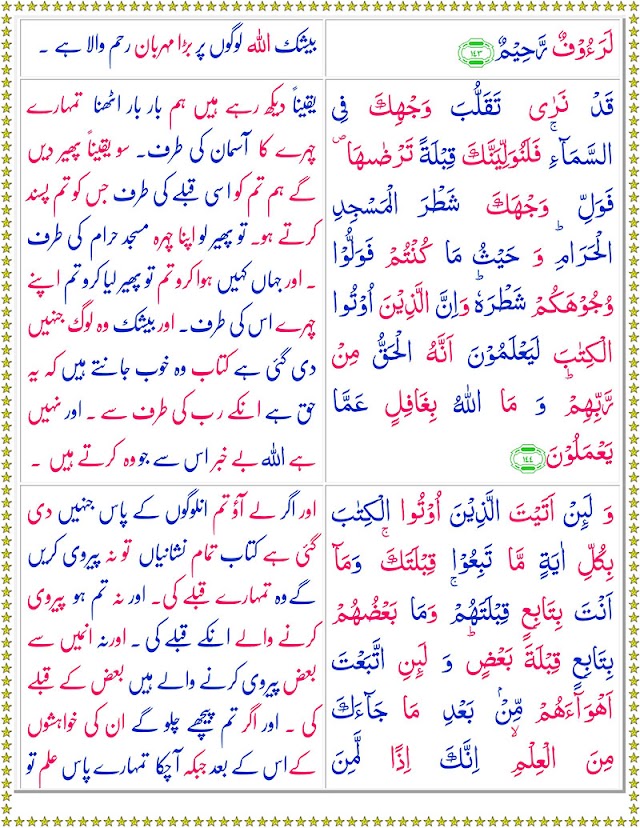 لَرَءُوۡفٌ رَّحِیۡمٌ ﴿۱۴۳﴾
بیشک اللہ لوگوں پر بڑا مہربان رحم والا ہے ۔
قَدۡ نَرٰی تَقَلُّبَ وَجۡهِكَ فِی
السَّمَآءِ ۚ فَلَنُوَلِّیَنَّكَ قِبۡلَةً تَرۡضٰىهَا ۪
فَوَلِّ وَجۡهَكَ شَطۡرَ الۡمَسۡجِدِ
الۡحَرَامِ ؕ وَ حَیۡثُ مَا كُنۡتُمۡ فَوَلُّوۡا
وُجُوۡهَكُمۡ شَطۡرَهٗ ؕ وَاِنَّ الَّذِیۡنَ اُوۡتُوا
الۡكِتٰبَ لَیَعۡلَمُوۡنَ اَنَّهُ الۡحَقُّ مِنۡ
رَّبِّهِمۡ ؕ وَ مَا اللّٰهُ بِغَافِلٍ عَمَّا
یَعۡمَلُوۡنَ ﴿۱۴۴﴾
یقیناً دیکھ رہے ہیں ہم بار بار اٹھنا تمہارے
چہرے کا آسمان کی طرف۔ سو یقیناً پھیر دیں
گے ہم تم کو اسی قبلے کی طرف جس کو تم پسند
کرتے ہو۔ تو پھیر لو اپنا چہرہ مسجد حرام کی طرف
۔ اور جہاں کہیں ہوا کرو تم تو پھیر لیا کرو تم اپنے
چہرے اس کی طرف۔ اور بیشک وہ لوگ جنہیں
دی گئی ہے کتاب وہ خوب جانتے ہیں کہ یہ
حق ہے انکے رب کی طرف سے ۔ اور نہیں
ہے اللہ بے خبر اس سے جو وہ کرتے ہیں ۔
وَ لَئِنۡ اَتَیۡتَ الَّذِیۡنَ اُوۡتُوا الۡكِتٰبَ
بِكُلِّ اٰیَةٍ مَّا تَبِعُوۡا قِبۡلَتَكَ ۚ وَمَاۤ
اَنۡتَ بِتَابِعٍ قِبۡلَتَهُمۡ ۚ وَمَا بَعۡضُهُمۡ
بِتَابِعٍ قِبۡلَةَ بَعۡضٍ ؕ وَ لَئِنِ اتَّبَعۡتَ
اَهۡوَآءَهُمۡ مِّنۡۢ بَعۡدِ مَا جَآءَكَ
مِنَ الۡعِلۡمِ ۙ اِنَّكَ اِذًا لَّمِنَ
اور اگر لے آؤ تم انلوگوں کے پاس جنہیں دی
گئی ہے کتاب تمام نشانیاں تو نہ پیروی کریں
گے وہ تمہارے قبلے کی۔ اور نہ تم ہو پیروی
کرنے والے انکے قبلے کی ۔ اور نہ انمیں سے
بعض پیروی کرنے والے ہیں بعض کے قبلے
کی ۔ اور اگر تم پیچھے چلو گے ان کی خواہشوں
کے اس کے بعد جبکہ آچکا تمہارے پاس علم تو